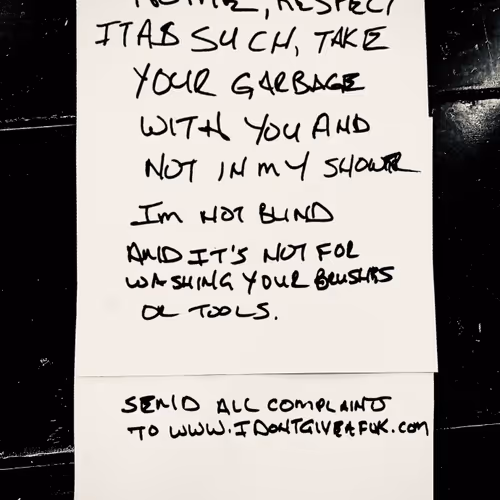 HOME, RESPECT
IT AS SUCH, TAKE
YOUR GARBAGE
WITH YOU AND
NOT IN MY SHOWER
IM NOT BLIND
AND IT'S NOT FOR
WASHING YOUR BRUSHES
OR TOOLS.
SEND ALL COMPLAINTS
TO WWW.IDONTGIVEAFUK.COM